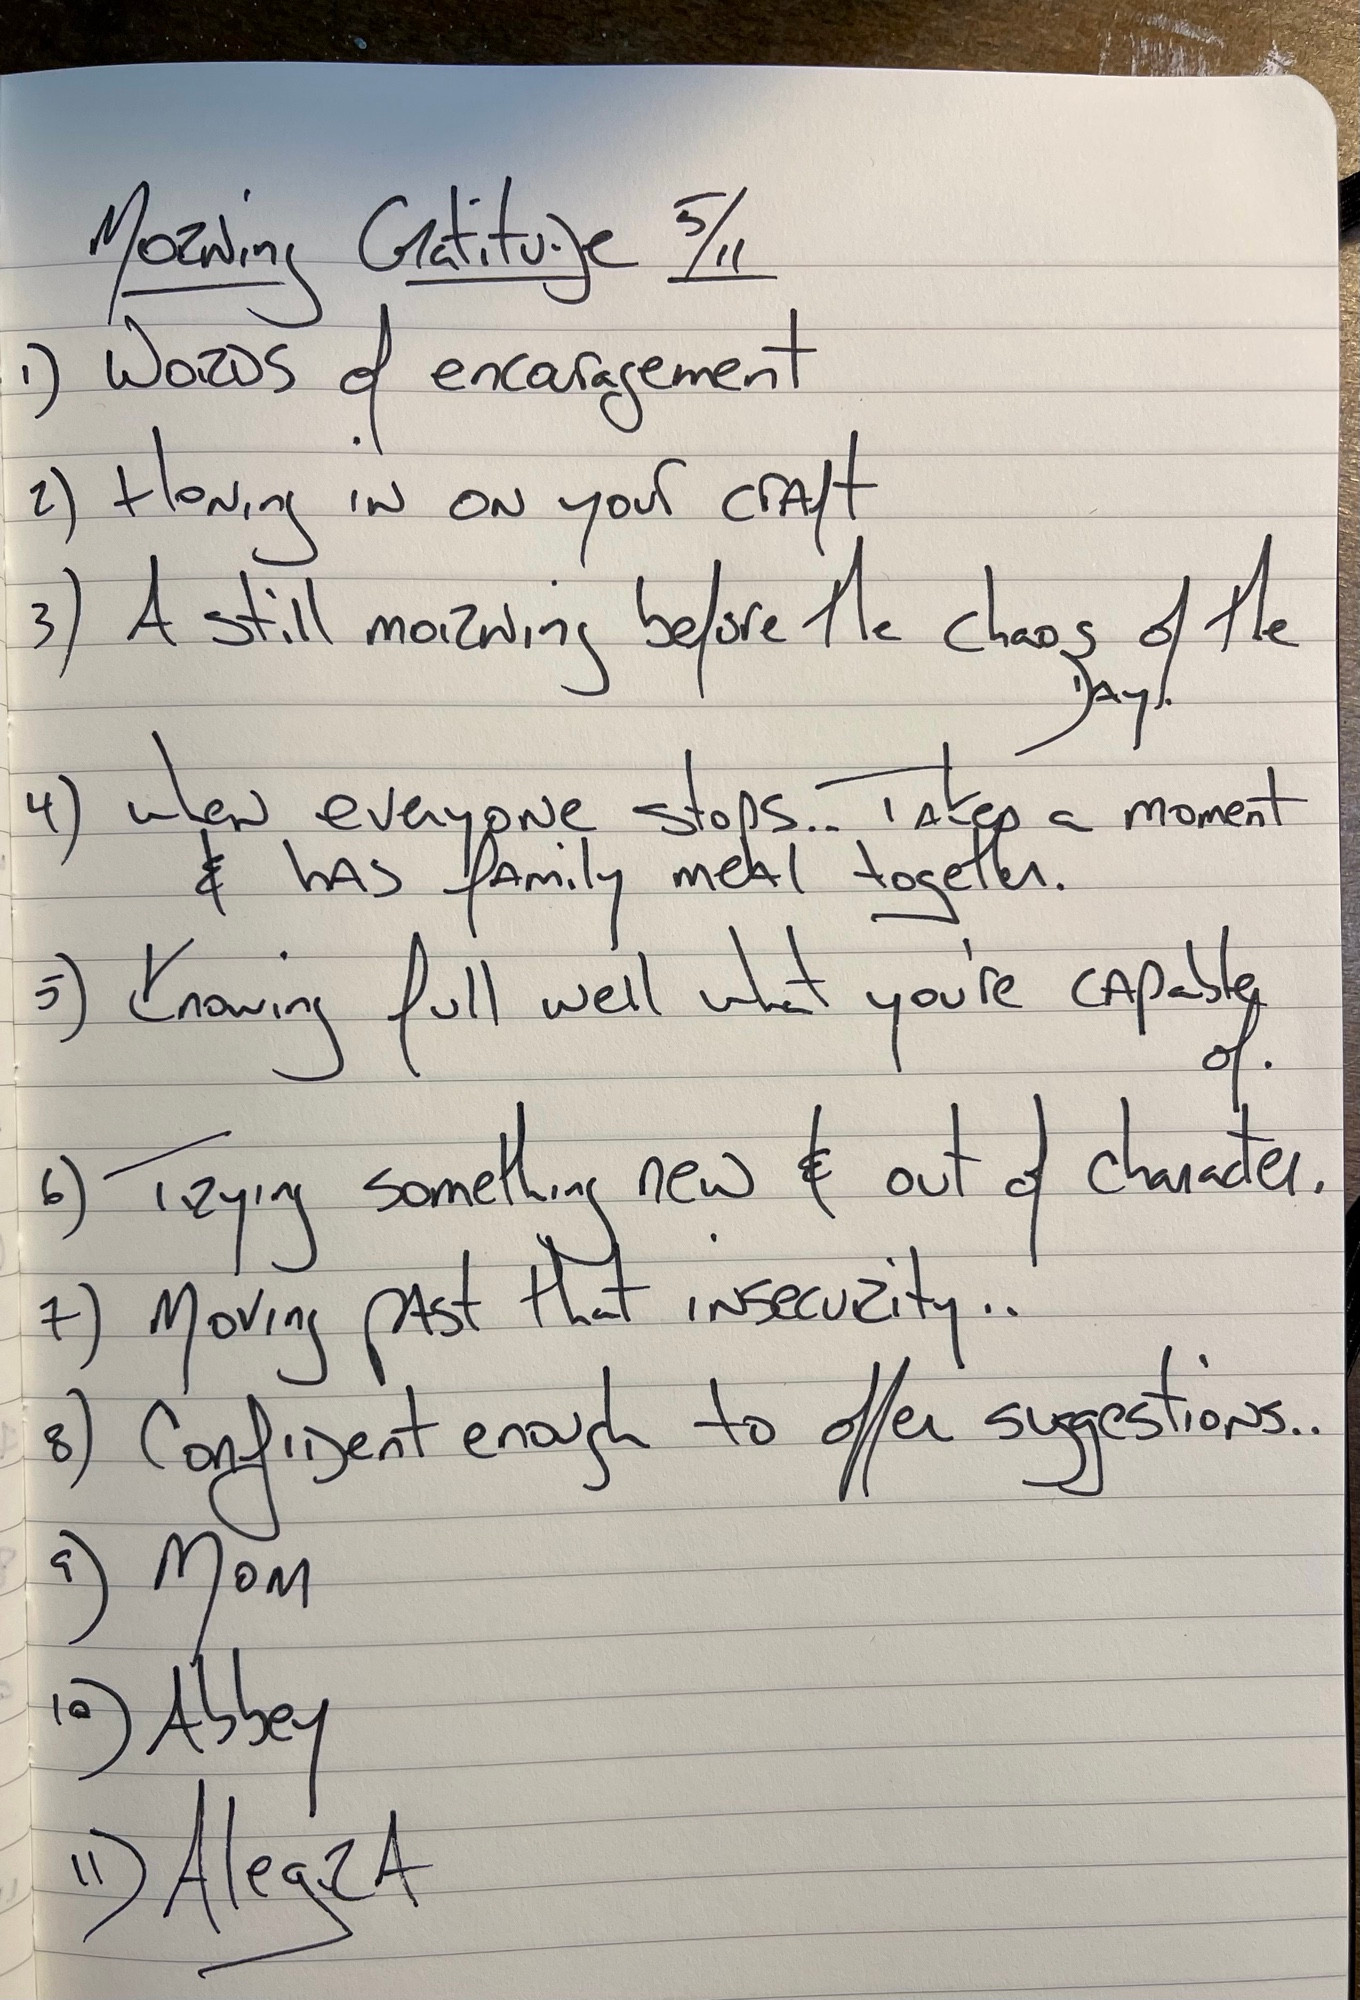 Morning Gratitude 5/11
1) Words of encouragement
2) Honing in on your craft
3) A still morning before the chaos of the
Day.
4) when everyone stops.. Takes a moment
& has family meal together.
5) Knowing full well what you're capable
of.
6) Trying something new & out of character.
7) Moving past that insecurity..
8) Confident enough to offer suggestions..
9) Mom
10) Abbey
11) Alegra